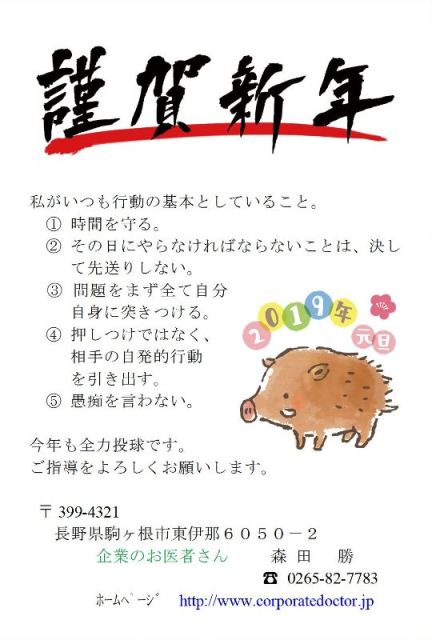 謹賀新年
私がいつも行動の基本としていること。
① 時間を守る。
② その日にやらなければならないことは、決し
て先送りしない。
③ 問題をまず全て自分
自身に突きつける。
④ 押しつけではなく、
相手の自発的行動
を引き出す。
⑤ 愚痴を言わない。
2019年
元旦
今年も全力投球です。
ご指導をよろしくお願いします。
〒399-4321
長野県駒ヶ根市東伊那６０５０－２
企業のお医者さん 森田 勝
☎ 0265-82-7783
ﾎｰﾑﾍﾟｰｼﾞ http://www.corporatedoctor.jp